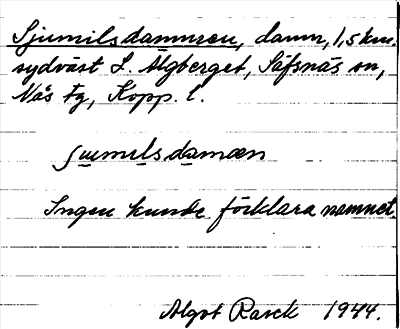 Sjumilsdammen, damm, 1,5 km.
sydväst L. Älgberget, Säfsnäs sn,
Nås tg, Kopp. l.
ʃumilsdamən
Ingen kunde förklara namnet
Algot Rasck 1944.